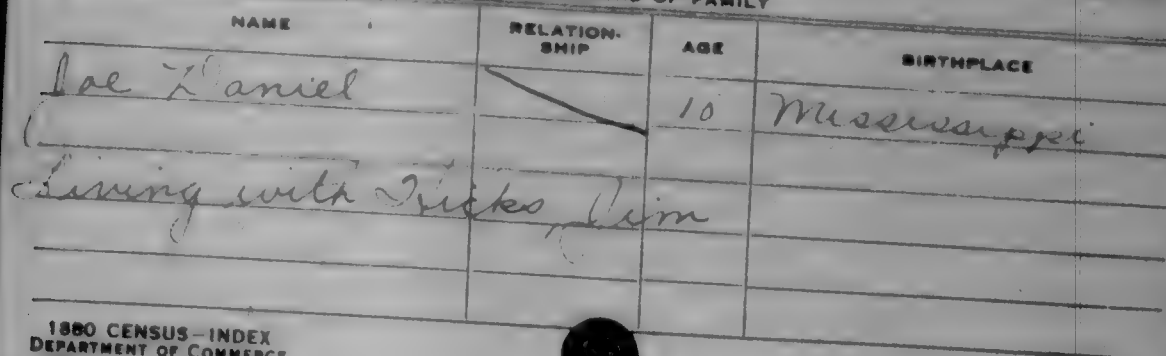 OF FAMILY
NAME RELATION-SHIP AGE BIRTHPLACE
Joe Daniel 10 Mississippi
Living with Hicks, Jim
1880 CENSUS—INDEX
DEPARTMENT OF COMMERCE